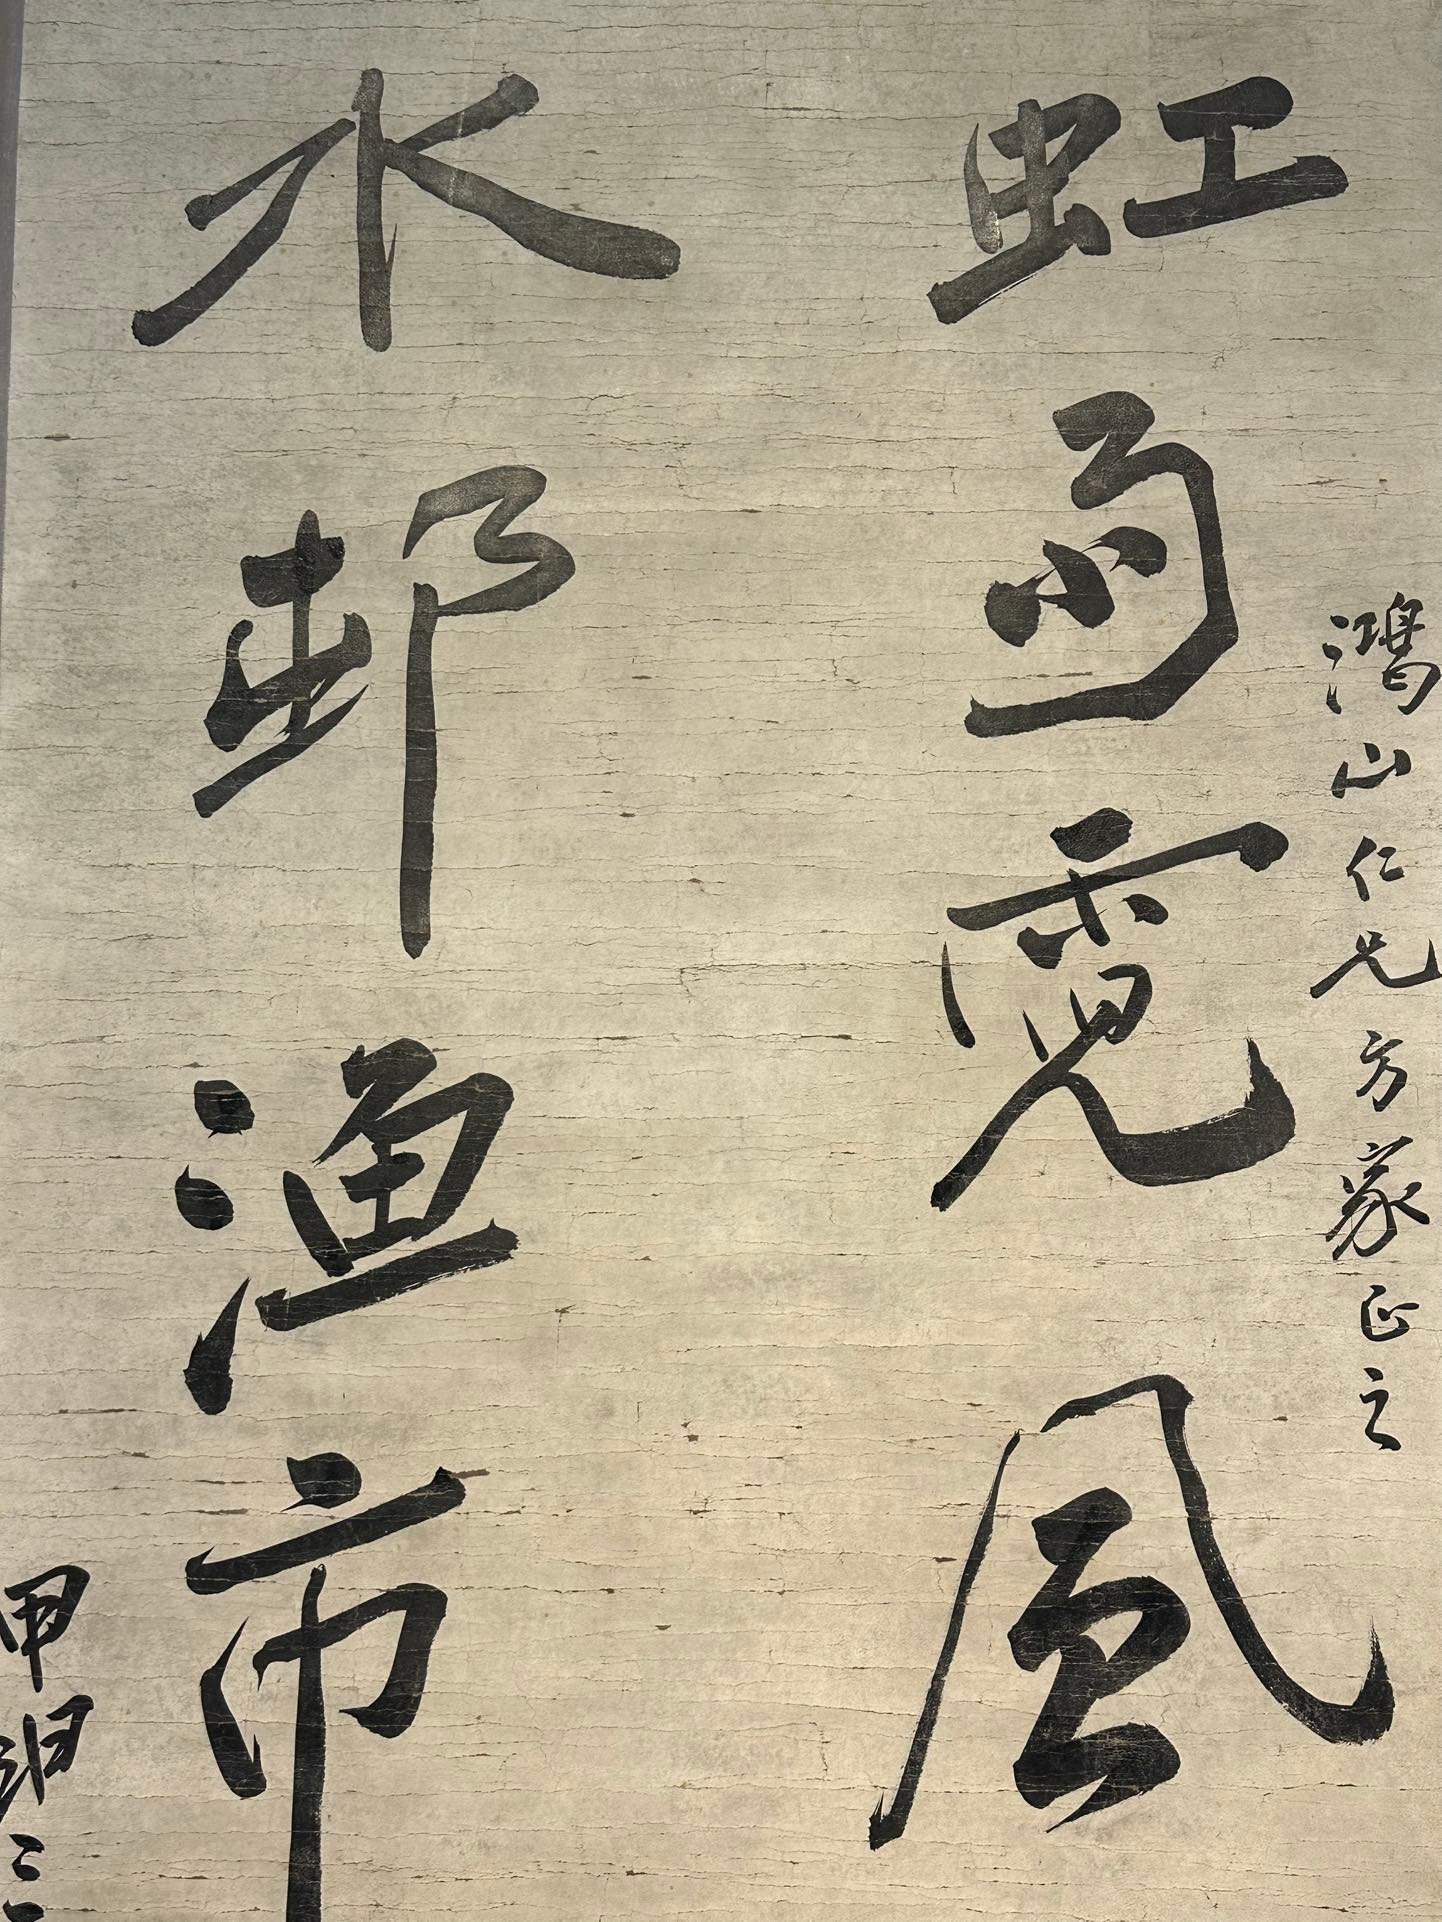 鴻山仁兄方家正之
虹雨霓風
水邨漁市
甲申